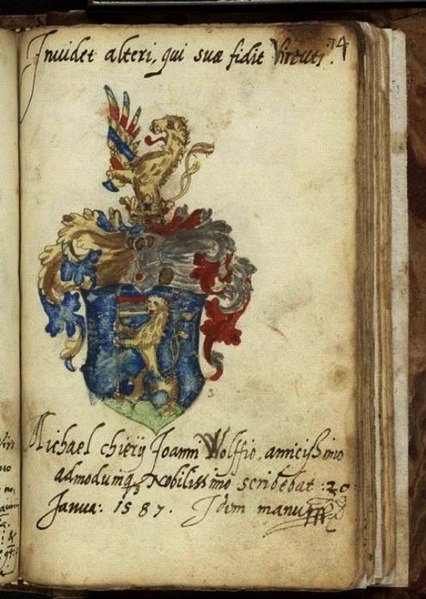 Inuidet alteri, qui suæ fidit Virtuti. 74
3
Michael Joanni Wolffio, amicissimo
admodumq; Nobilissimo scribebat 20
Janua: 1587. Idem manu